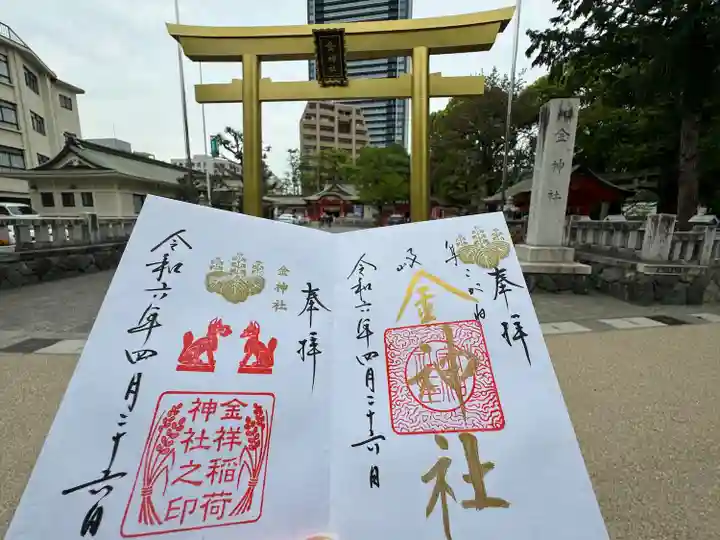 金神社
金神社
奉拝
岐阜こがね
金神社
令和六年四月二十六日
奉拝
金神社
金祥稲荷
神社之印
令和六年四月二十六日